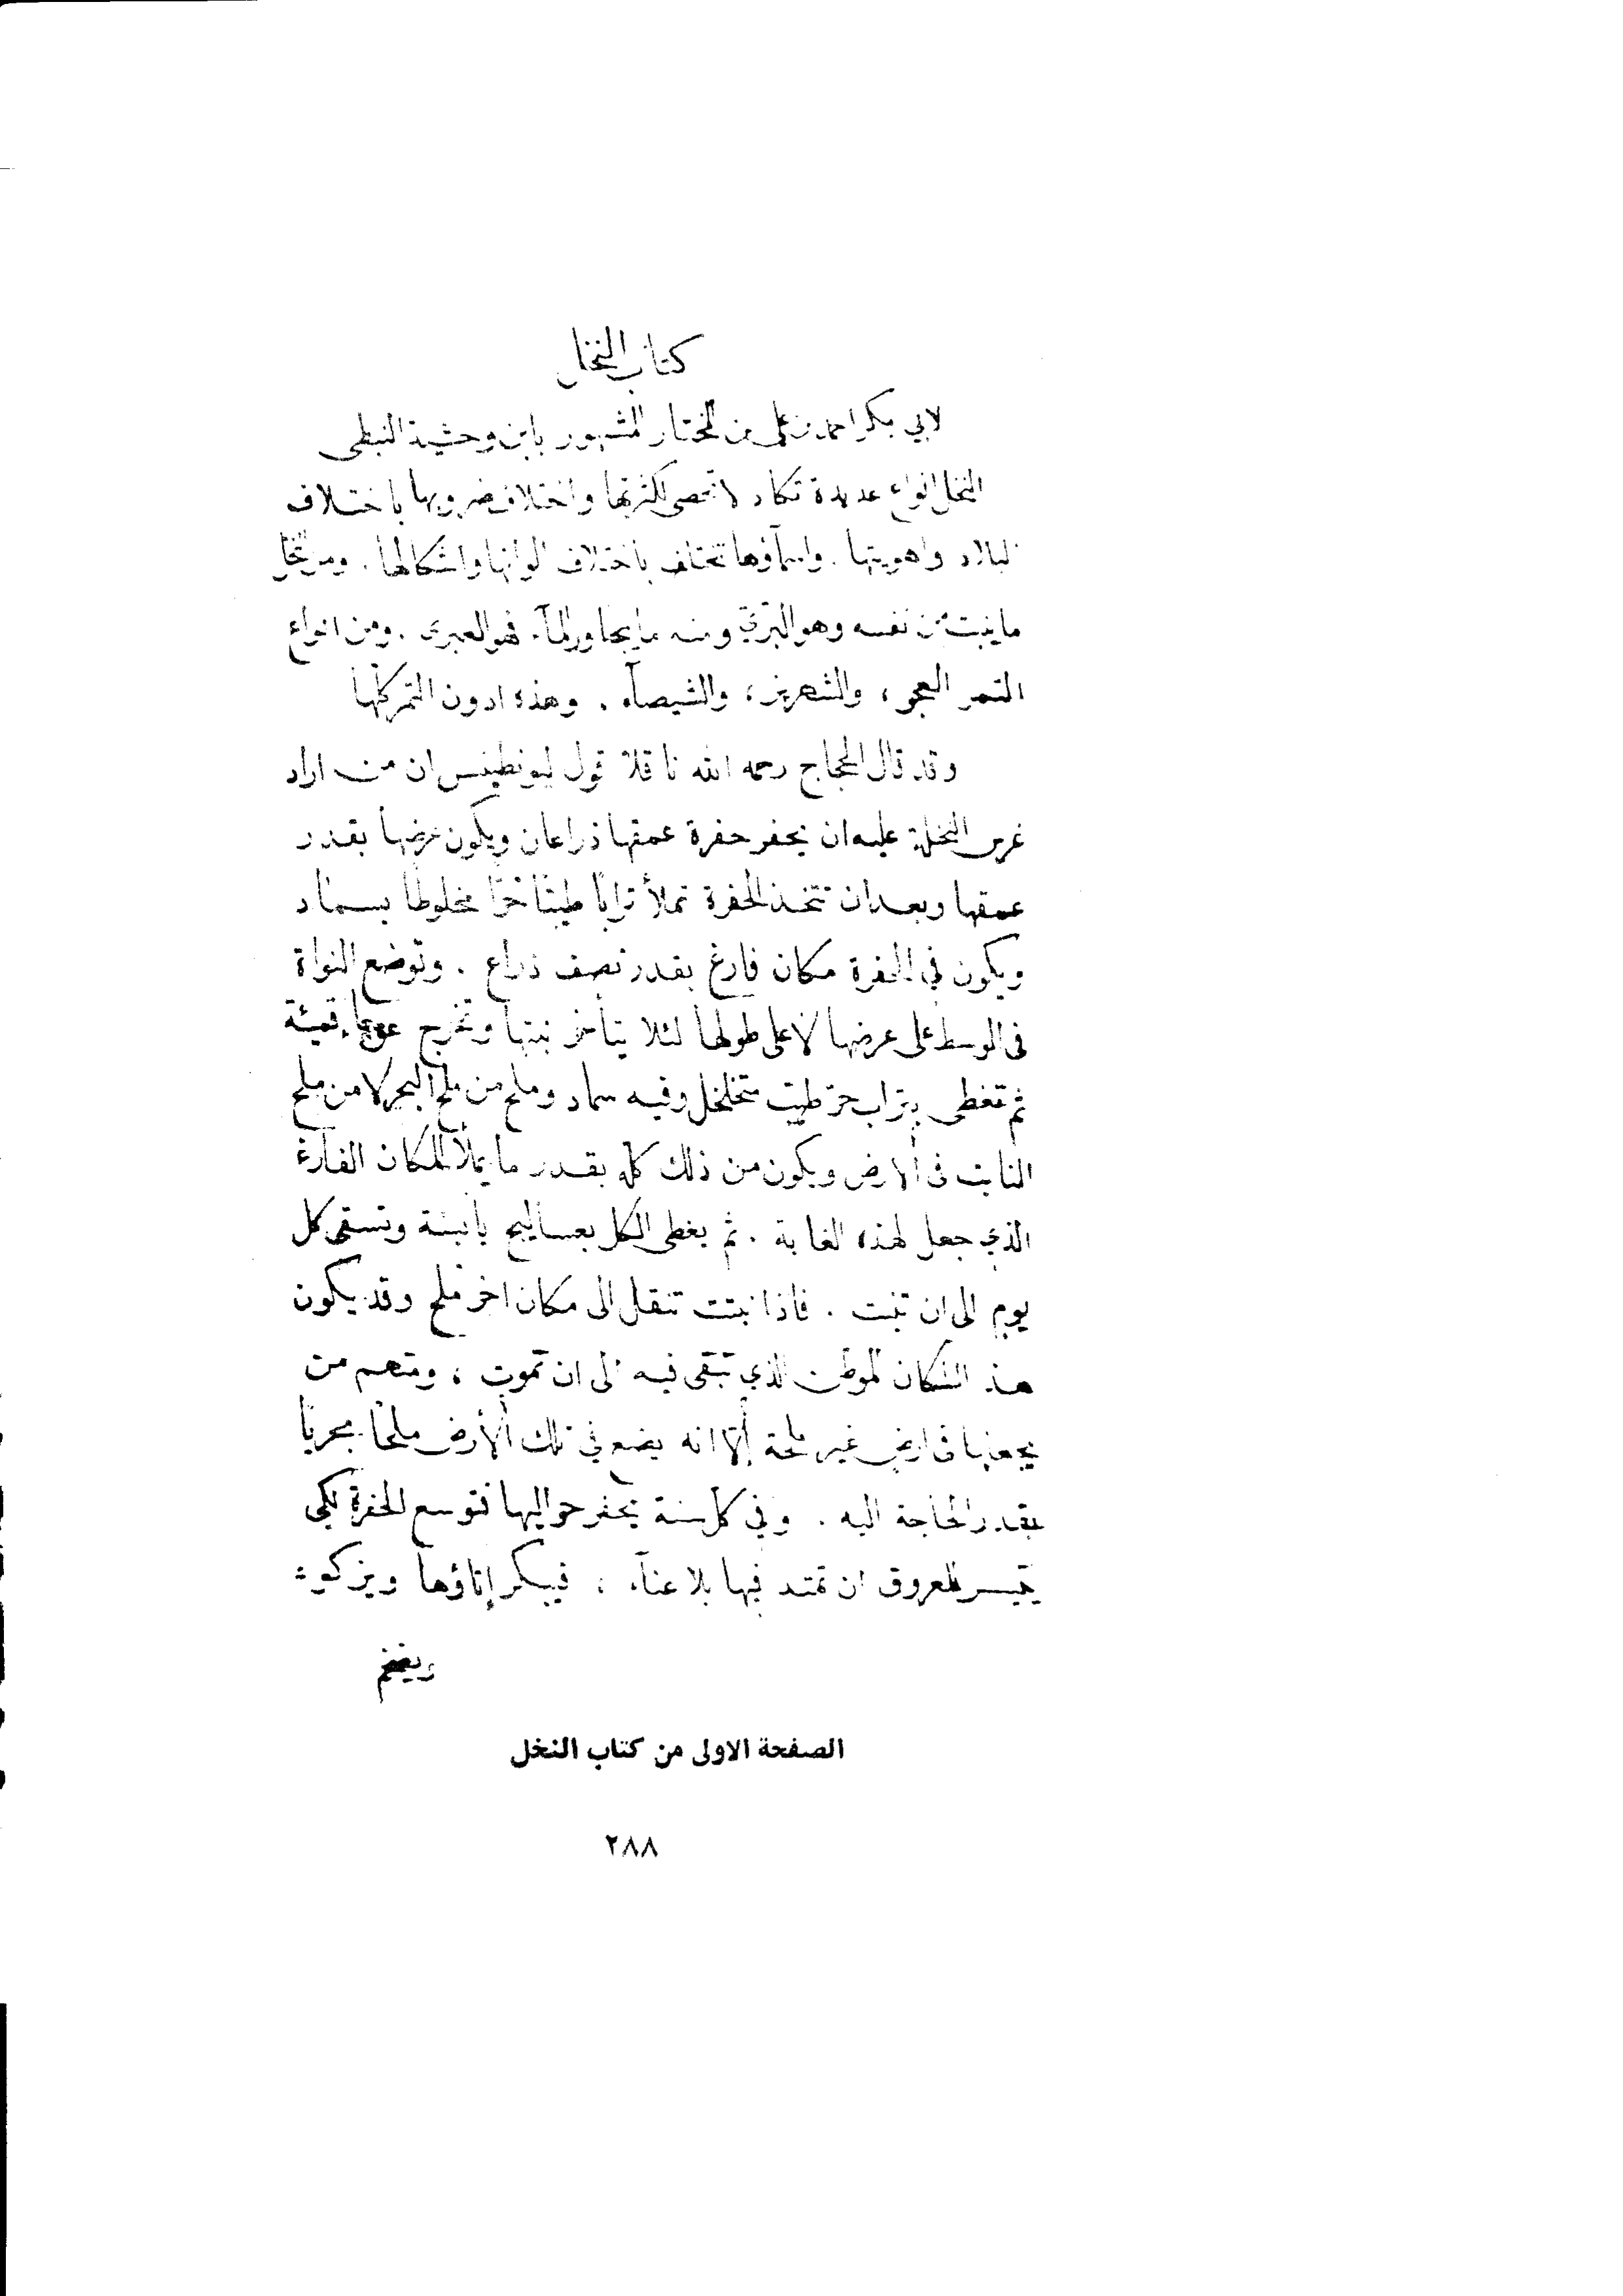 كتاب النخل
لابي بكر احمد بن علي بن المختار المشهور بابن وحشية النبطي
النخل انواع عديدة تكاد لا تحصى لكثرتها واختلاف ضروبها باختلاف
البلاد واهويتها . واسمآؤها تختلف باختلاف الوانها واشكالها . ومن النخل
ما ينبت من نفسه وهو البري ومنه ما يجاور المآء فهو العبرى . ومن انواع
التمر العجو، والشهريز، والشيصآء . وهذه ادون التمر كلها
وقد قال الحجاج رحمه الله ناقلا قول ليونطيس ان من اراد
غرس النخلة عليه ان يحفر حفرة عمقها ذراعان ويكون عرضها بقدر
عمقها وبعد ان تتخذ الحفرة تملأ ترابًا طيبًا حرًا مخلوطًا بسماد
ويكون في الحفرة مكان فارغ بقدر نصف ذراع . وتوضع النواة
فى الوسط على عرضها لا على طولها لئلا يتأخر نبتها وتخرج قميئة
ثم تغطى بتراب حر طيب متخلخل وفيه سماد وملح من ملح البحر لا من ملح
النابت فى الارض ويكون من ذلك كله بقدر ما يملأ المكان الفارغ
الذي جعل لهذه الغاية . ثم يغطى الكل بعساليج يابسة وتسقى كل
يوم الى ان تنبت . فاذا نبتت تنقل الى مكان اخر ملح وقد يكون
هذ المكان الموطن الذي تبقى فيه الى ان تموت ، ومنهم من
يجعلها فى ارض غير ملحة إلا انه يضع في تلك الأرض ملحًا بحريًا
بقدر الحاجة اليه . وفي كل سنة يحفر حواليها فتوسع الحفرة لكي
يتيسر للعروق ان تمتد فيها بلا عنآء ، فيبكر إتاؤها ويزكو
ويضخم
الصفحة الاولى من كتاب النخل
٢٨٨